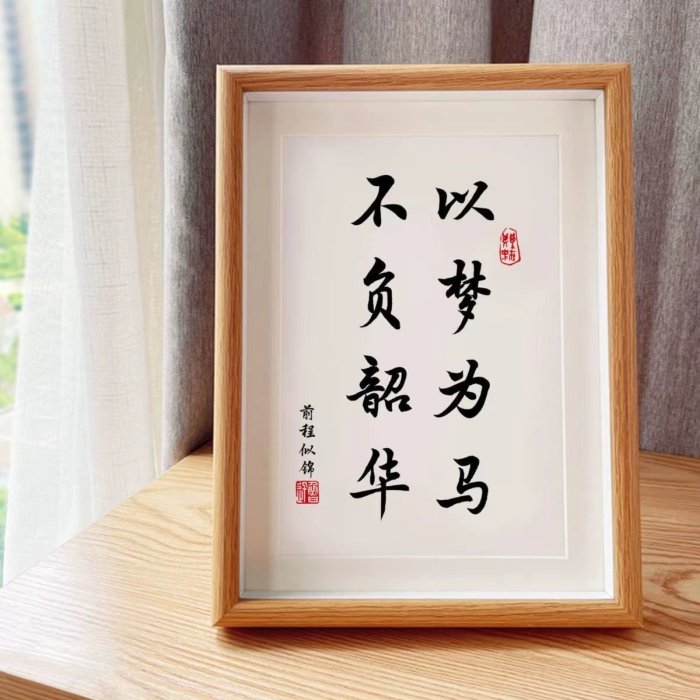 以梦为马
不负韶华
前程似锦